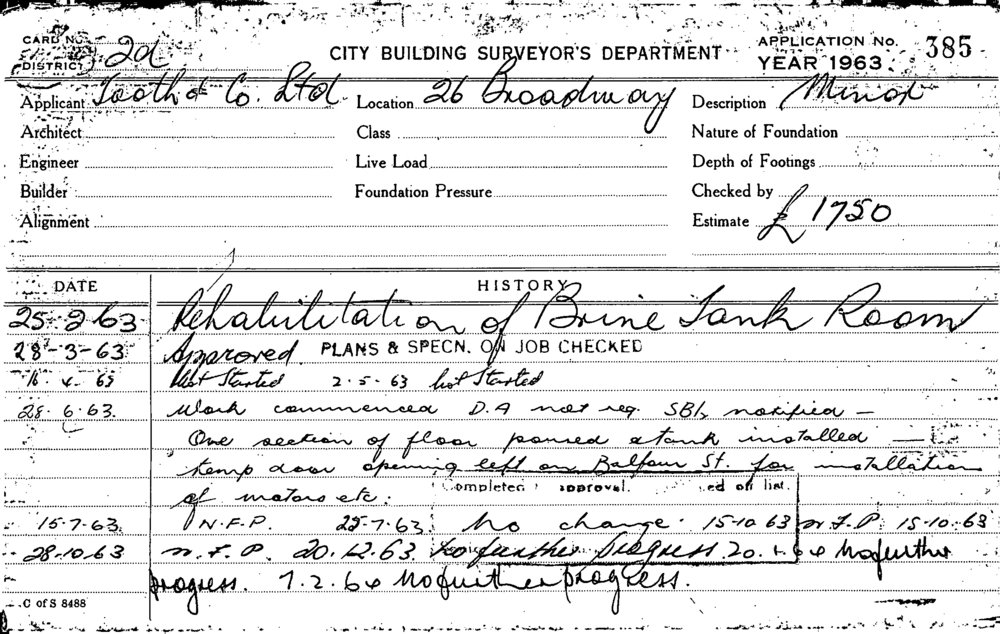 CARD No. 2d
DISTRICT
CITY BUILDING SURVEYOR'S DEPARTMENT
APPLICATION No. 385
YEAR 1963
Applicant Tooth & Co. Ltd. Location 26 Broadway Description Minor
Architect Class Nature of Foundation
Engineer Live Load Depth of Footings
Builder Foundation Pressure Checked by
Alignment Estimate £1750
DATE HISTORY
25-2-63 Rehabilitation of Brine Tank Room
28-3-63 Approved. PLANS & SPECN. ON JOB CHECKED
16.4.63 Not Started 2-5-63 Not Started
28.6.63. Work commenced D.A not req. notified —
One section of floor poured & tank installed —
temp door opening left on Balfour St. for installation
of motors etc.
Completed approval. ed off list.
15-7-63. N.F.P. 25-7-63. No change. 15-10 63 N.F.P. 15-10-63
28-10-63 N.F.P. 20.12.63 No further progress 20.1.64 No further
progress. 7.2.64 No further progress.
C of S 8488